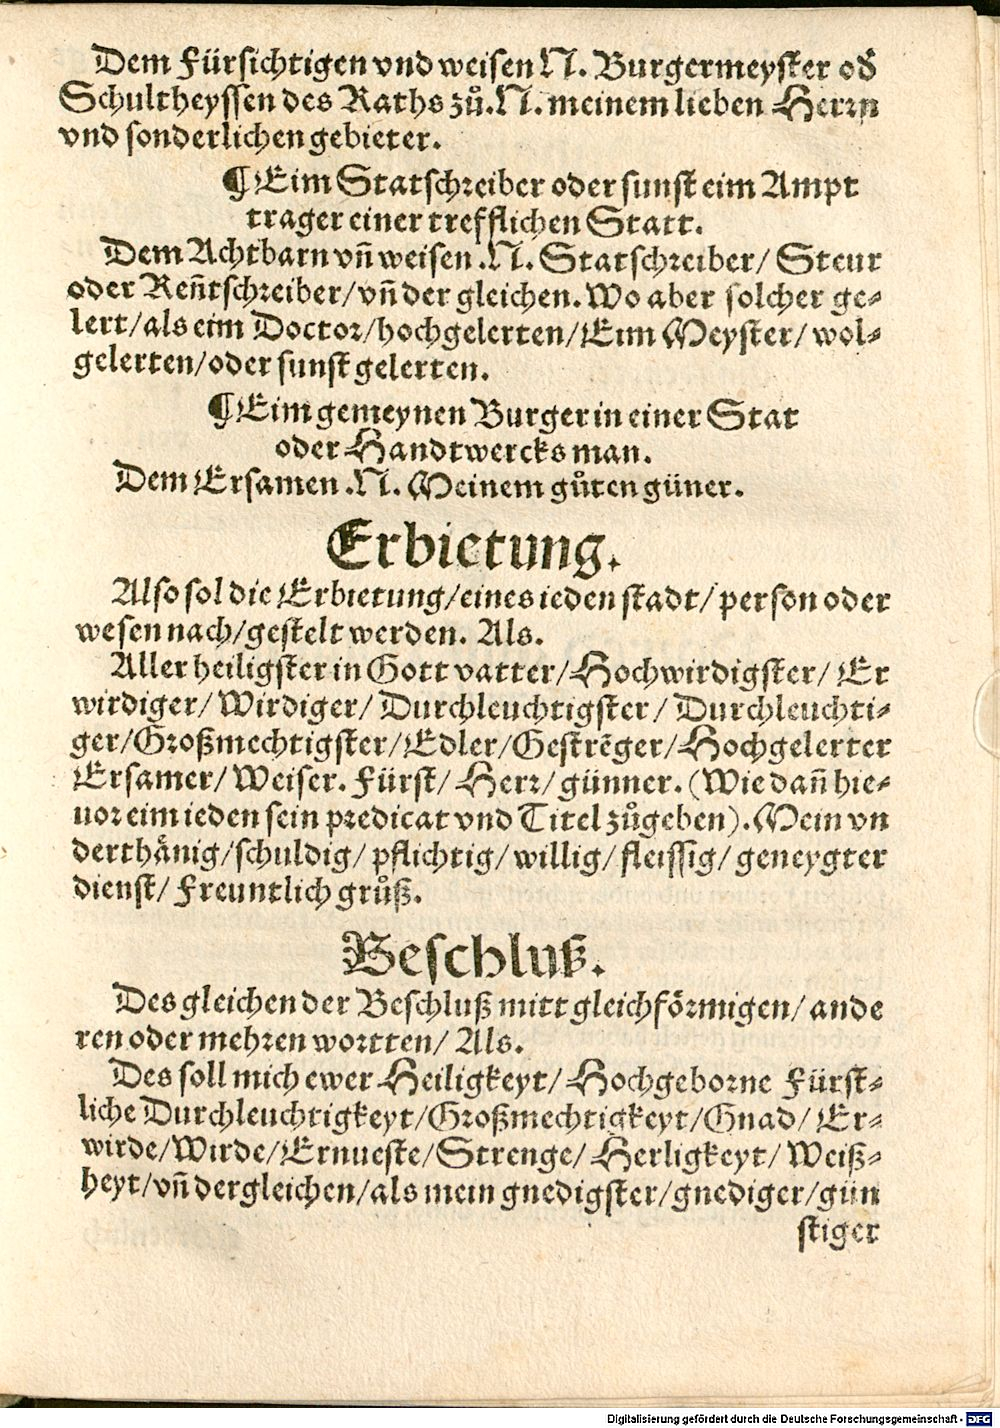 Dem Fürsichtigen vnd weisen N. Burgermeyster od̕
Schultheyssen des Raths zů .N. meinem lieben Herrn
vnd sonderlichen gebieter.
¶ Eim Statschreiber oder sunst eim Ampt
trager einer trefflichen Statt.
Dem Achtbarn vñ weisen .N. Statschreiber/ Steur
oder Reñtschreiber/ vñ der gleichen. Wo aber solcher ge⸗
lert/ als eim Doctor/ hochgelerten/ Eim Meyster/ wol⸗
gelerten/ oder sunst gelerten.
¶ Eim gemeynen Burger in einer Stat
oder Handtwercks man.
Dem Ersamen .N. Meinem gůten güner.
Erbietung.
Also sol die Erbietung/ eines ieden stadt/ person oder
wesen nach/ gestelt werden. Als.
Aller heiligster in Gott vatter/ Hochwirdigster/ Er
wirdiger/ Wirdiger/ Durchleuchtigster/ Durchleuchti⸗
ger/ Großmechtigster/ Edler/ Gestrẽger/ Hochgelerter
Ersamer/ Weiser. Fürst/ Herr/ günner. (Wie dañ hie⸗
uor eim ieden sein predicat vnd Titel zůgeben). Mein vn
derthänig/ schuldig/ pflichtig/ willig/ fleissig/ geneygter
dienst/ Freuntlich grůß.
Beschluß.
Des gleichen der Beschluß mitt gleichförmigen/ ande
ren oder mehren wortten/ Als.
Des soll mich ewer Heiligkeyt/ Hochgeborne Fürst⸗
liche Durchleuchtigkeyt/ Großmechtigkeyt/ Gnad/ Er⸗
wirde/ Wirde/ Ernueste/ Strenge/ Herligkeyt/ Weiß⸗
heyt/ vñ dergleichen/ als mein gnedigster/ gnediger/ gün
stiger
Digitalisierung gefördert durch die Deutsche Forschungsgemeinschaft - DFG